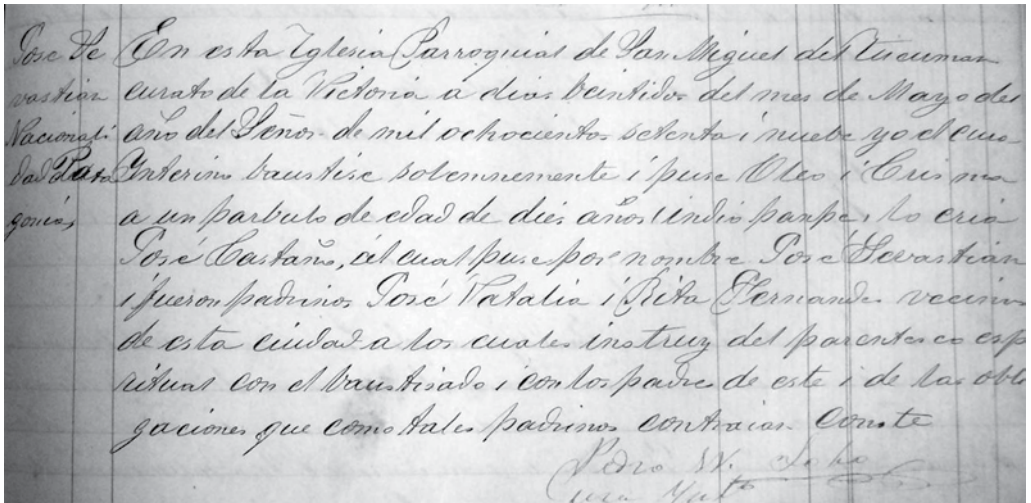 José Se
vastian
Nacionali
dad Pata
gonia,
En esta Yglesia Parroquial de San Miguel del Tucuman
curato de la Victoria a dias beintidos del mes de Mayo del
año del Señor de mil ochocientos setenta i nuebe yo el cura
Ynterino baustise solennemente i puse Oleo i Crisma
a un parbulo de edad de dies años (indio panpa, lo cria
José Castaño, al cual puse por nombre José Sevastian
i fueron padrinos José Natalia i Rita Hernandes vecinos
de esta ciudad a los cuales instruy del parentesco esp
ritual con el baustisado i con los padre de este i de las obli
gaciones que como tales padrinos contraian conste
Pedro W.
Cura